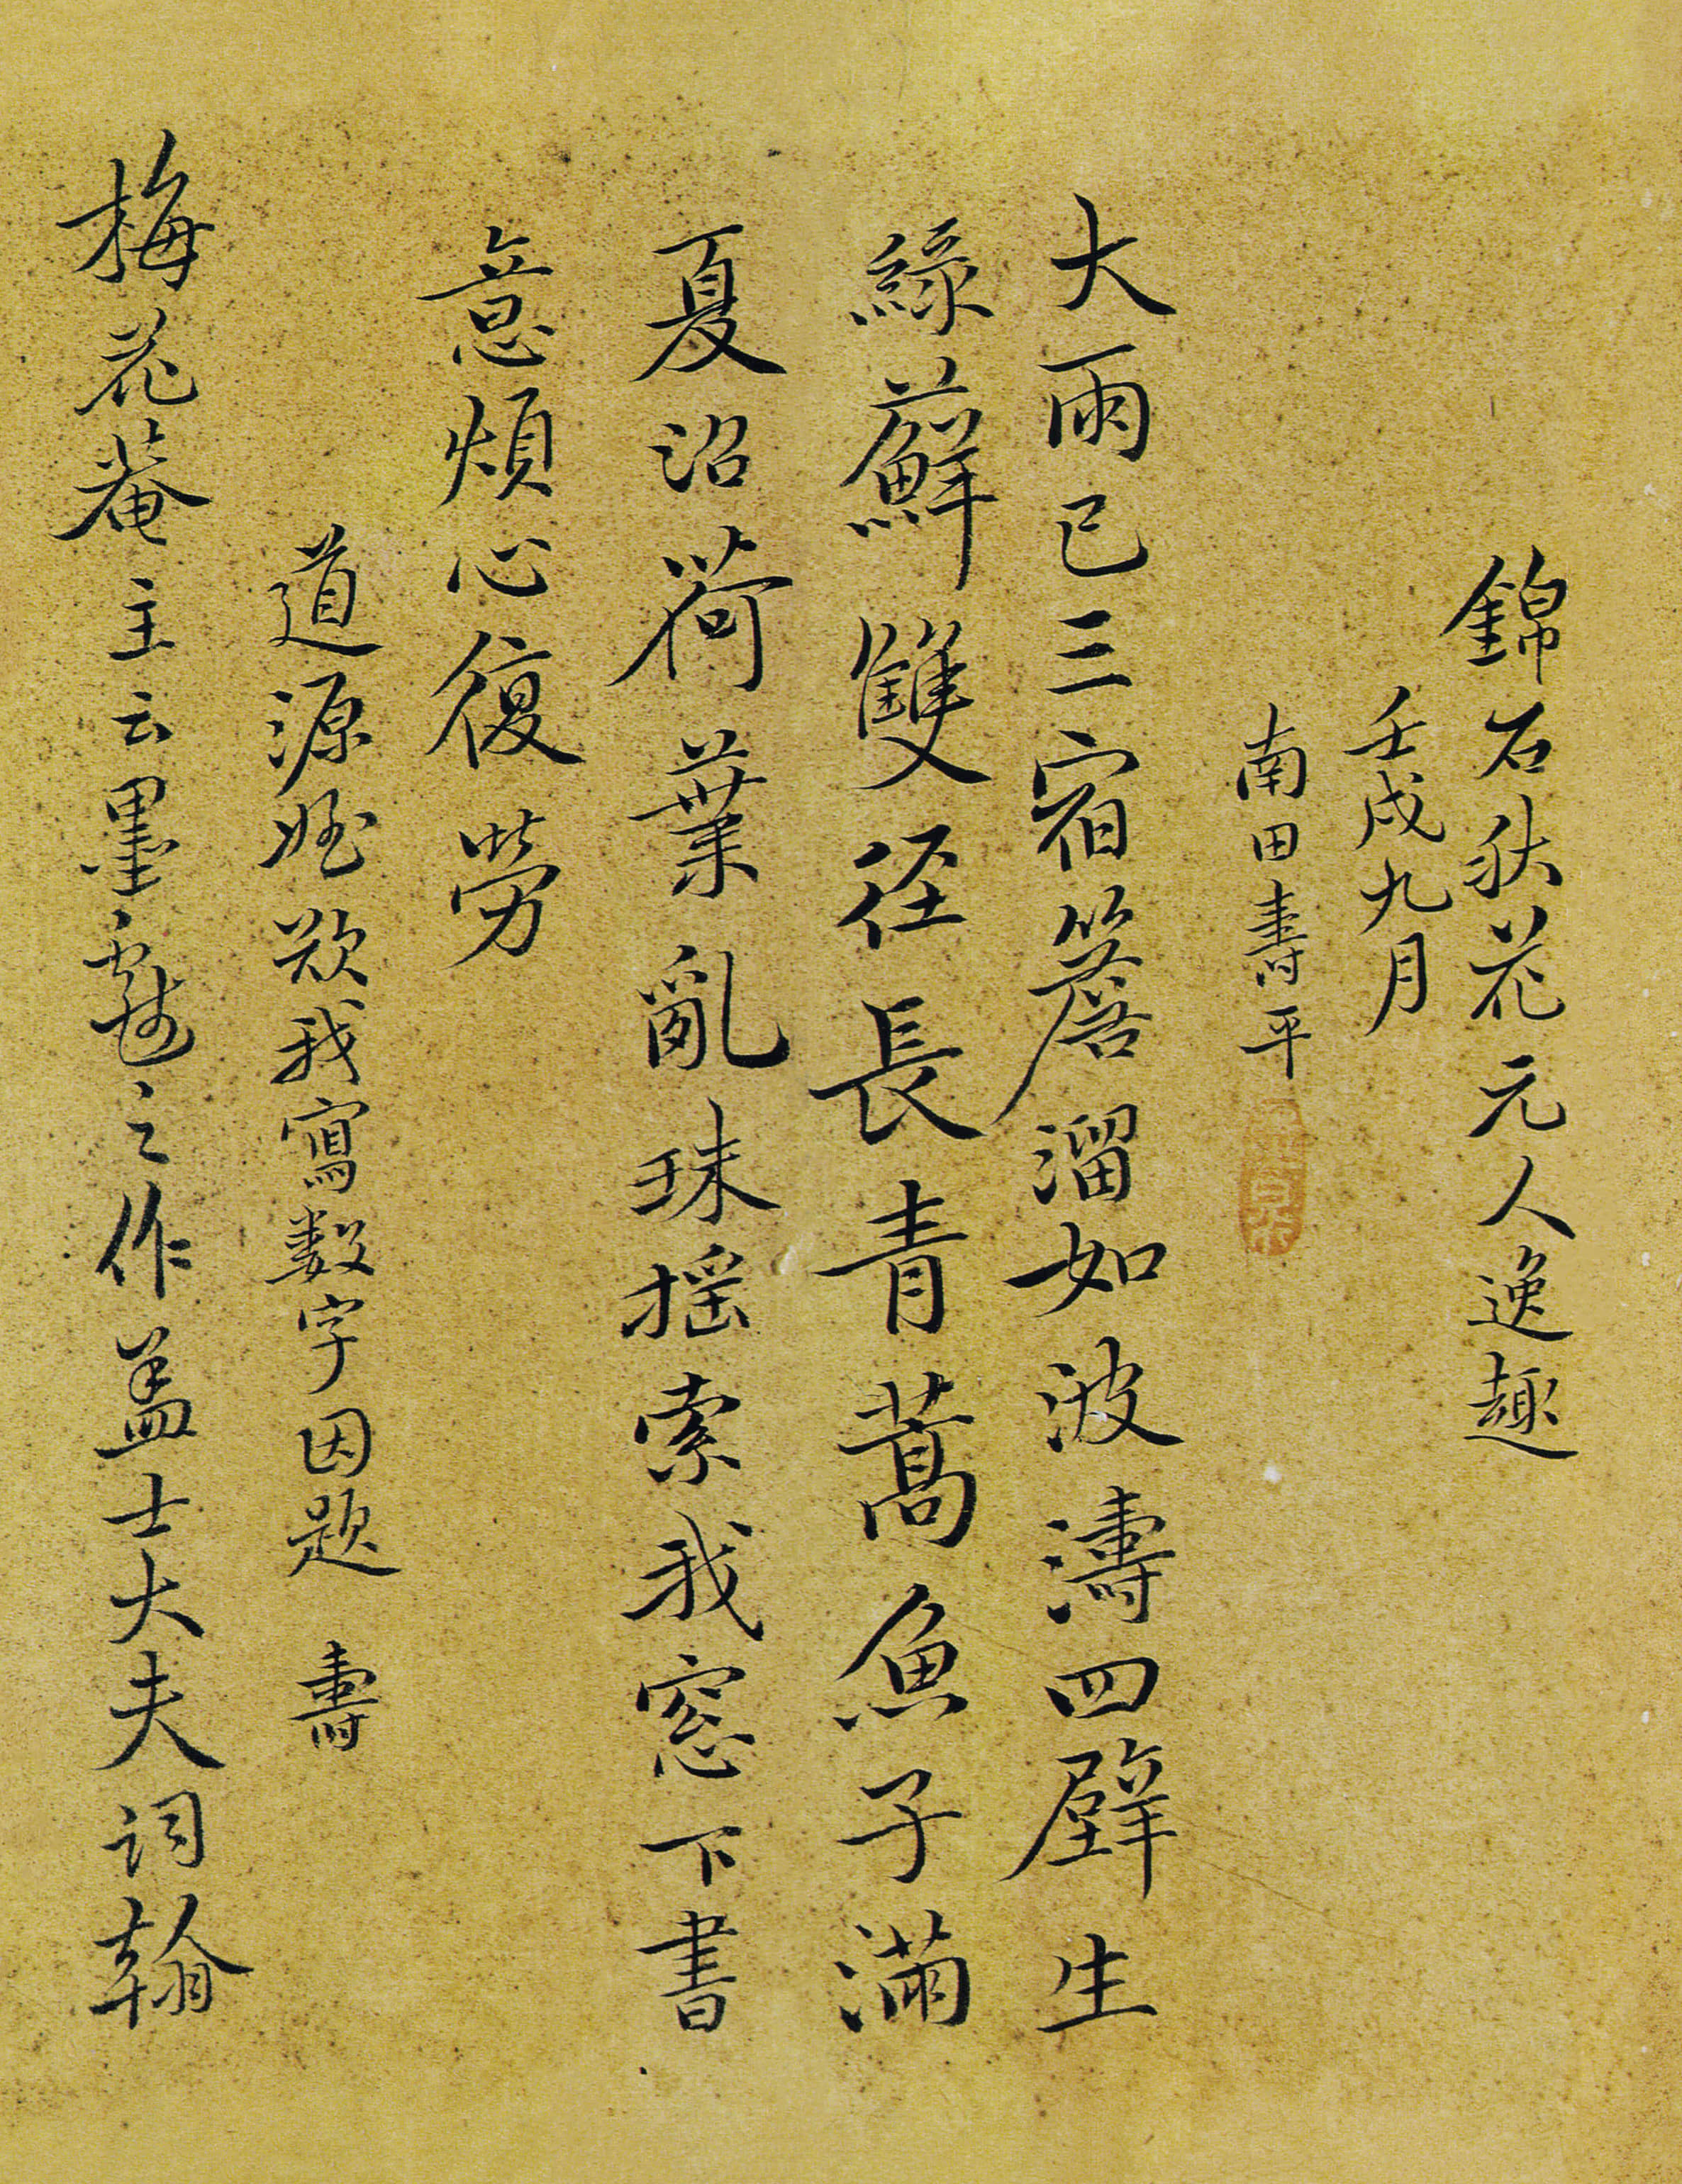 錦石秋花元人逸趣
壬戌九月
南田壽平
大雨已三宿簷溜如波濤四壁生
綠蘚雙徑長青蒿魚子滿
夏沼荷葉亂珠搖索我窓下書
意煩心復勞
道源姪欲我寫数字因題 壽
梅花菴主云墨戲之作盖士大夫詞翰